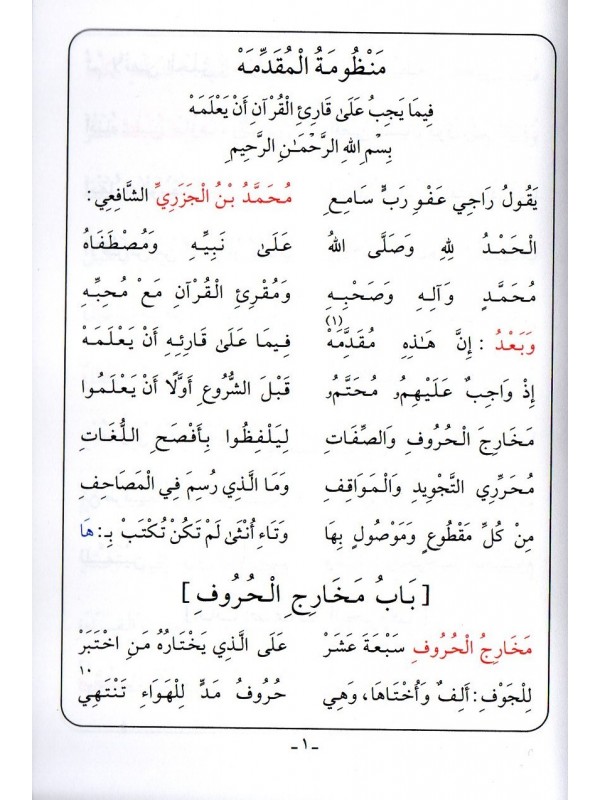 مَنْظُومَةُ الْمُقَدِّمَهْ
فِيمَا يَجِبُ عَلَى قَارِئِ الْقُرْآنِ أَنْ يَعْلَمَهْ
بِسمِ اللهِ الرَّحْمَـٰنِ الرَّحِيمِ
يَقُولُ رَاجِي عَفْوِ رَبٍّ سَامِعِ مُحَمَّدُ بْنُ الْجَزَرِيِّ الشَّافِعِي :
الْحَمْدُ لِلهِ وَصَلَّى اللهُ عَلَى نَبِيِّهِ وَمُصْطَفَاهُ
مُحَمَّدٍ وَآلِهِ وَصَحْبِهِ وَمُقْرِئِ الْقُرْآنِ مَعْ مُحِبِّهِ
وَبَعْدُ : إِنَّ هَـٰذِهِ مُقَدِّمَهْ (١) فِيمَا عَلَى قَارِئِهِ أَنْ يَعْلَمَهْ
إِذْ وَاجِبٌ عَلَيْهِمُۥ مُحَتَّمُۥ قَبْلَ الشُّرُوعِ أَوَّلًا أَنْ يَعْلَمُوا
مَخَارِجَ الْحُرُوفِ وَالصِّفَاتِ لِيَلْفِظُوا بِأَفْصَحِ اللُّغَاتِ
مُحَرِّرِي التَّجْوِيدِ وَالْمَوَاقِفِ وَمَا الَّذِي رُسِمَ فِي الْمَصَاحِفِ
مِنْ كُلِّ مَقْطُوعٍ وَمَوْصُولٍ بِهَا وَتَاءِ أُنْثَى لَمْ تَكُنْ تُكْتَبْ بِـ: هَا
[ بَابُ مَخَارِجِ الْحُرُوفِ ]
مَخَارِجُ الْحُرُوفِ سَبْعَةَ عَشَرْ عَلَى الَّذِي يَخْتَارُهُ مَنِ اخْتَبَرْ
لِلْجَوْفِ: أَلِفٌ وَأُخْتَاهَا، وَهِي حُرُوفُ مَدٍّ لِلْهَوَاءِ تَنْتَهِي ١٠
- ١ -